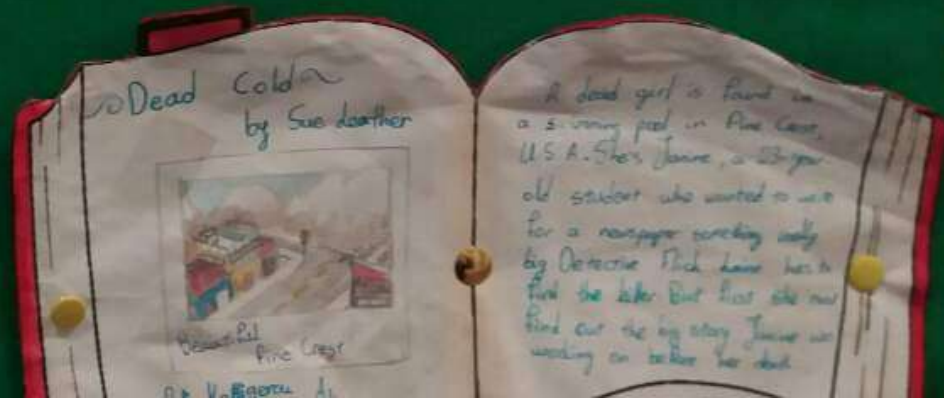 Dead Cold
by Sue Leather
Beautiful
Pine Crest
A dead girl is found in
a in Pine Crest,
U.S.A. She's Janine, a 23-year
old student who wanted to write
for a newspaper something really
big Detective Flick Laine has to
find the killer But first she must
find out the big story Janine was
working on before her death